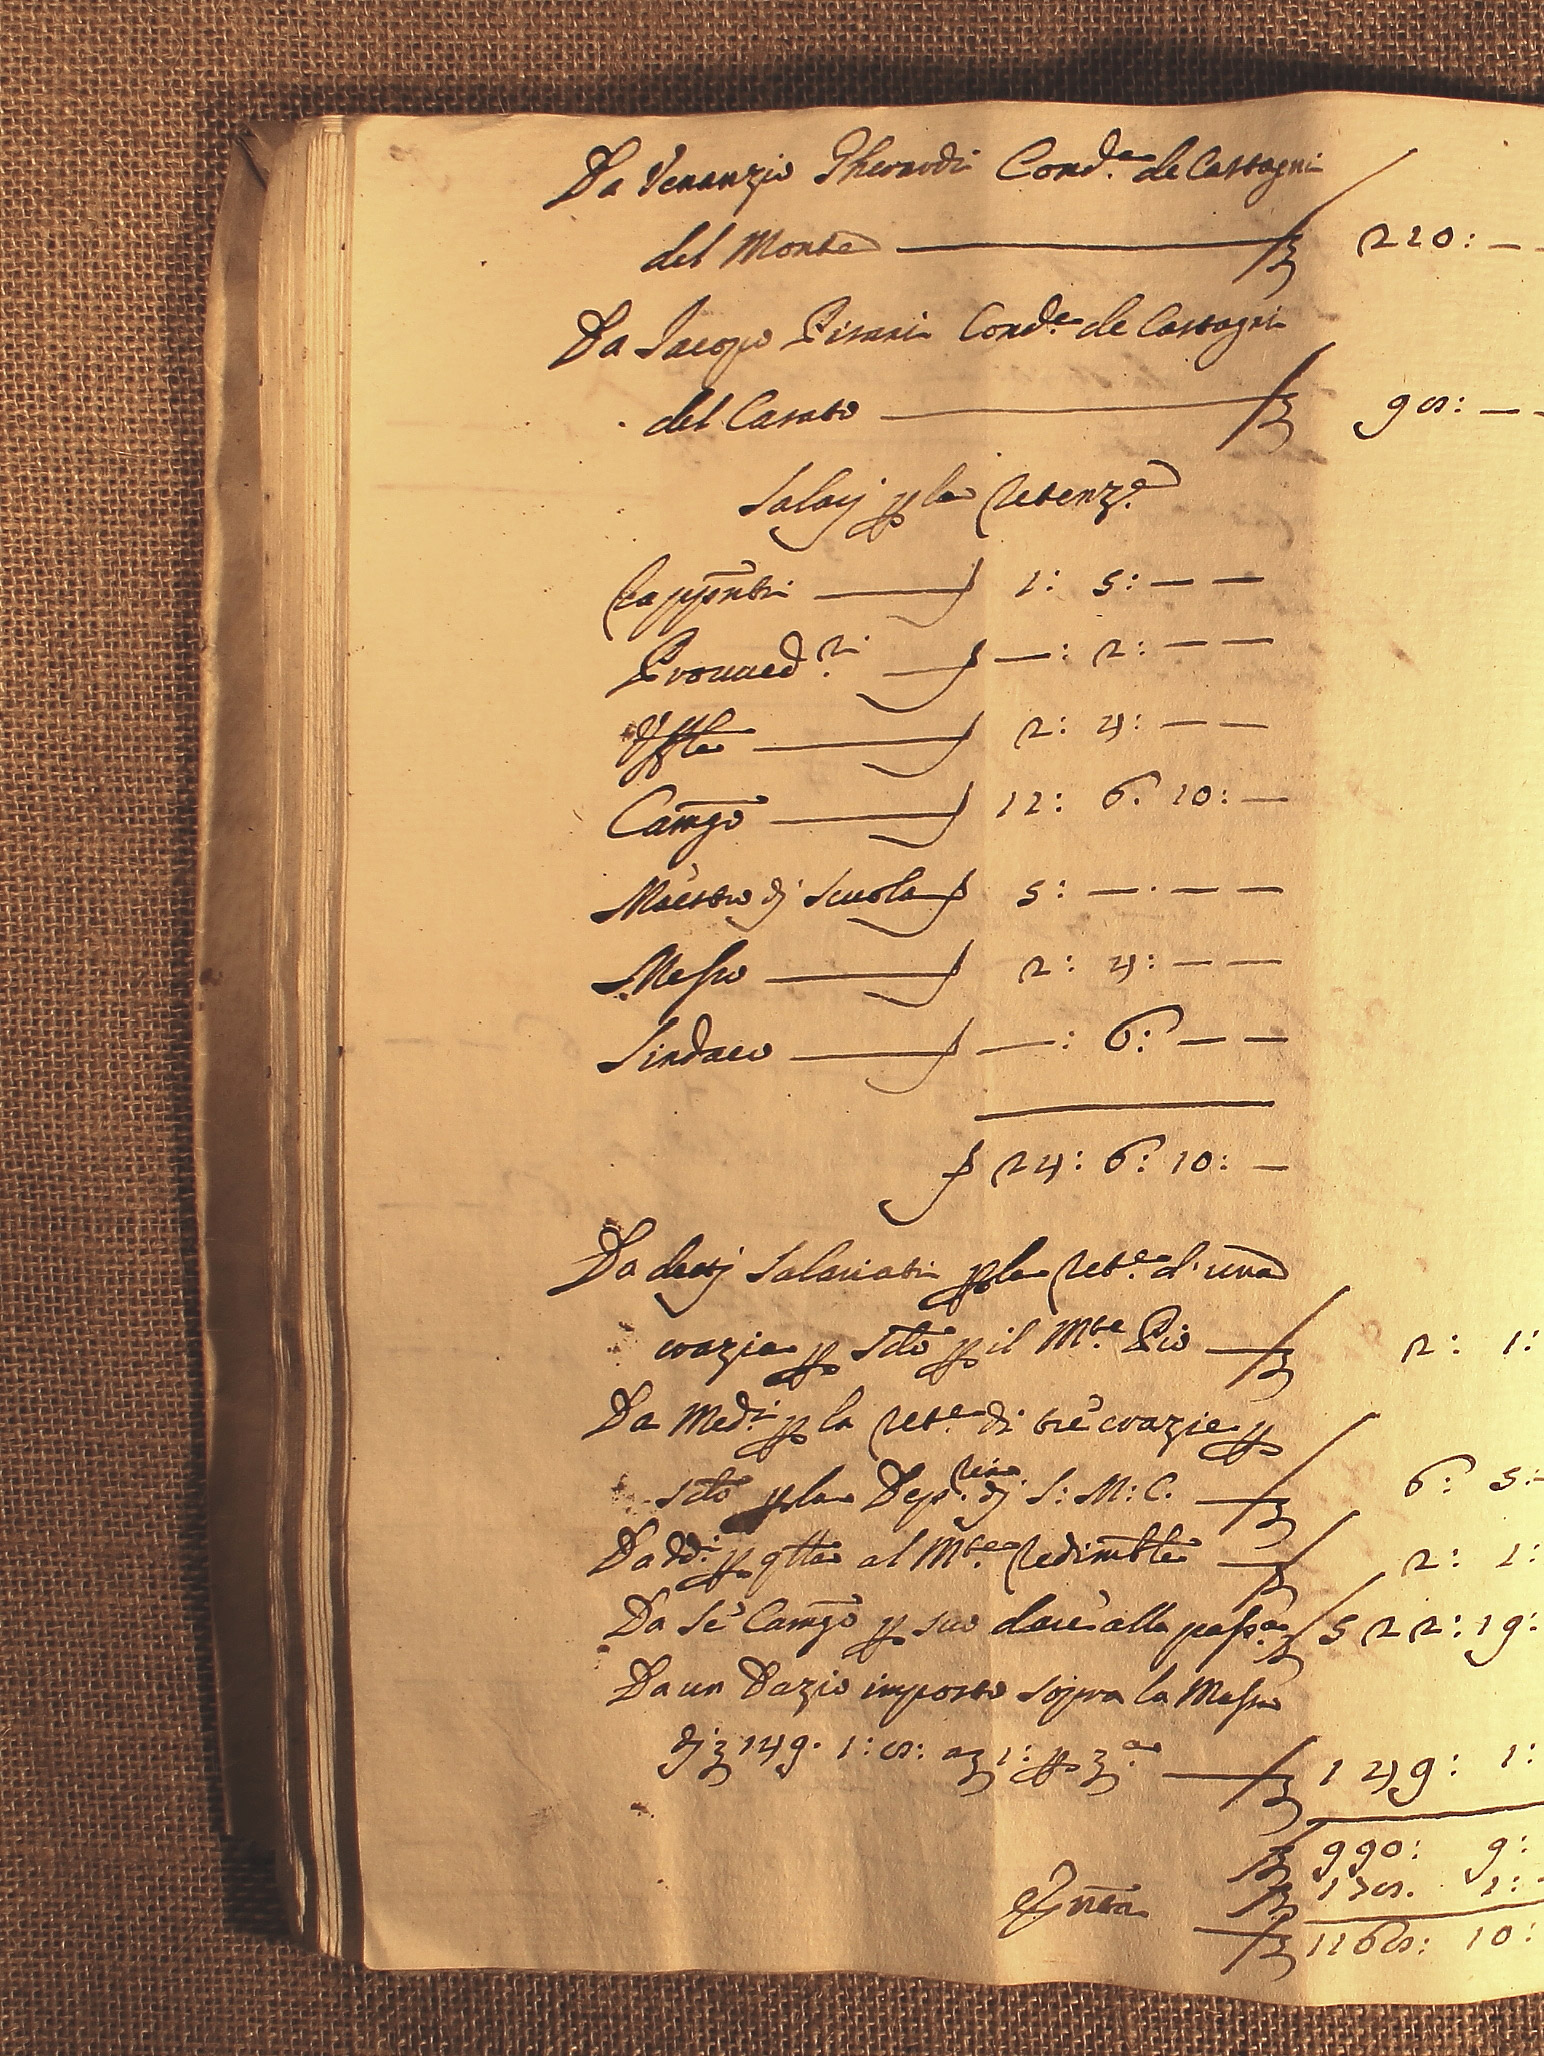 Da Venanzio Gherardi Cond.e de Castagni
del Monte ₤ 220: — —
Da Jacopo Pisani Cond.e de Castagni
del Casato ₤ 90: — —
Salarj p la Reten.za
Rapp̄nti ƒ 1: 5: — —
Proued.ri ƒ —: 2: — —
Uff.le ƒ 2: 4: — —
Camgō ƒ 12: 6: 10: —
Maestro dj Scuola ƒ 5: —. — —
Messo ƒ 2: 4: — —
Sindaco ƒ —: 6: — —
ƒ 24: 6: 10: —
Da dettj Salariati p la Ret.e d'una
crazia p Sc̄to p il M.te Pio ₤ 2: 1:
Da Med.i p la Ret.e di trè crazie p
Sc̄to p la Dep.ria dj S: M: C. ₤ 6: 5:
Da d.i p qtta al M.te Redim̄ble ₤ 2: 1:
Da Sè Camgō p suo dare alla passa ₤ 522: 19:
Da un Dazio imposto sopra la Massa
dj ₤ 149. 1: 0: a ₤ 1: p ₤.a ₤ 149: 1:
₤ 990: 9:
₤ 170. 1:
₤ 1160: 10: